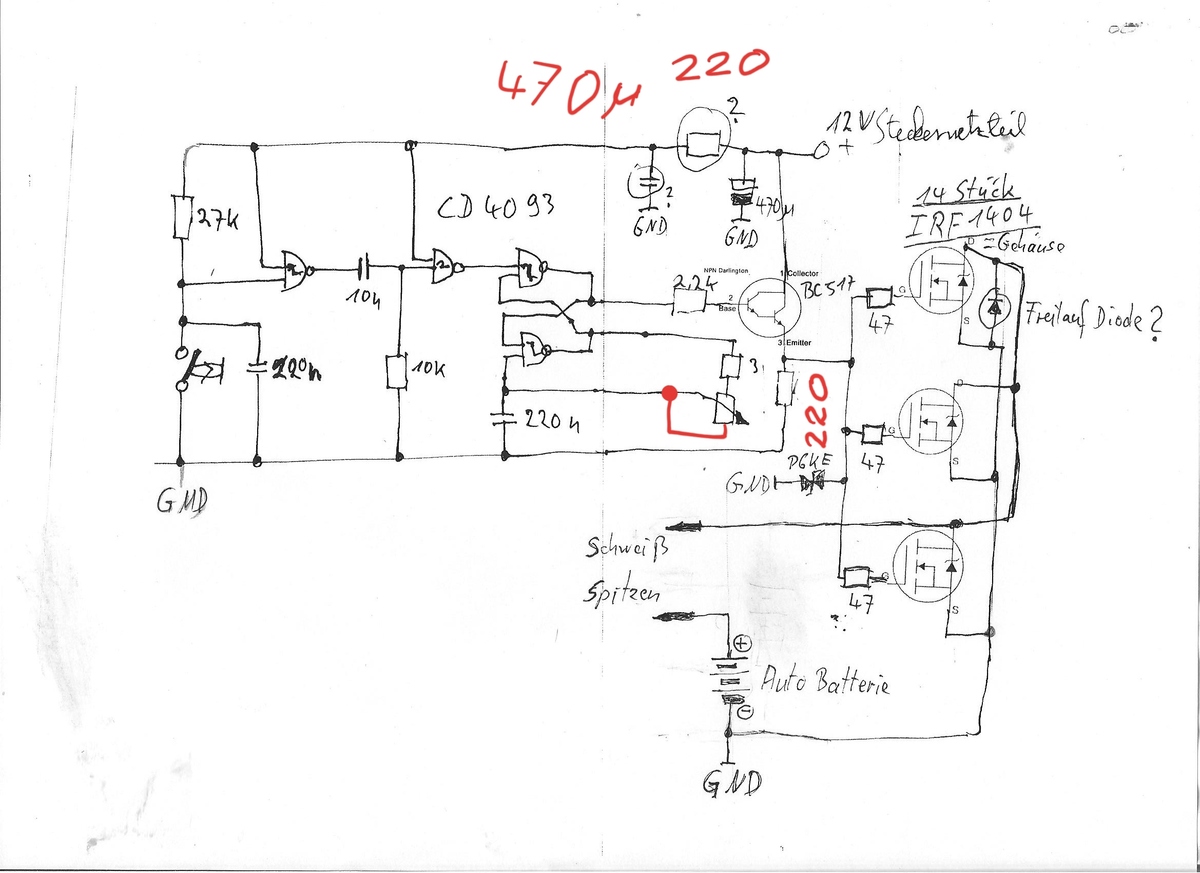 470µ 220
?
12V Steckernetzteil
+
14 Stück
IRF1404
= Gehäuse
D
27K
CD 4093
?
GND
470µ
GND
10n
2,2K
NPN Darlington
1 Collector
2
Base
BC517
3 Emitter
G
S
47
Freilauf Diode?
220n
10K
3
220
220n
D
G
S
47
P6KE
GND
GND
Schweiß
Spitzen
G
S
47
?
+
Auto Batterie
-
GND